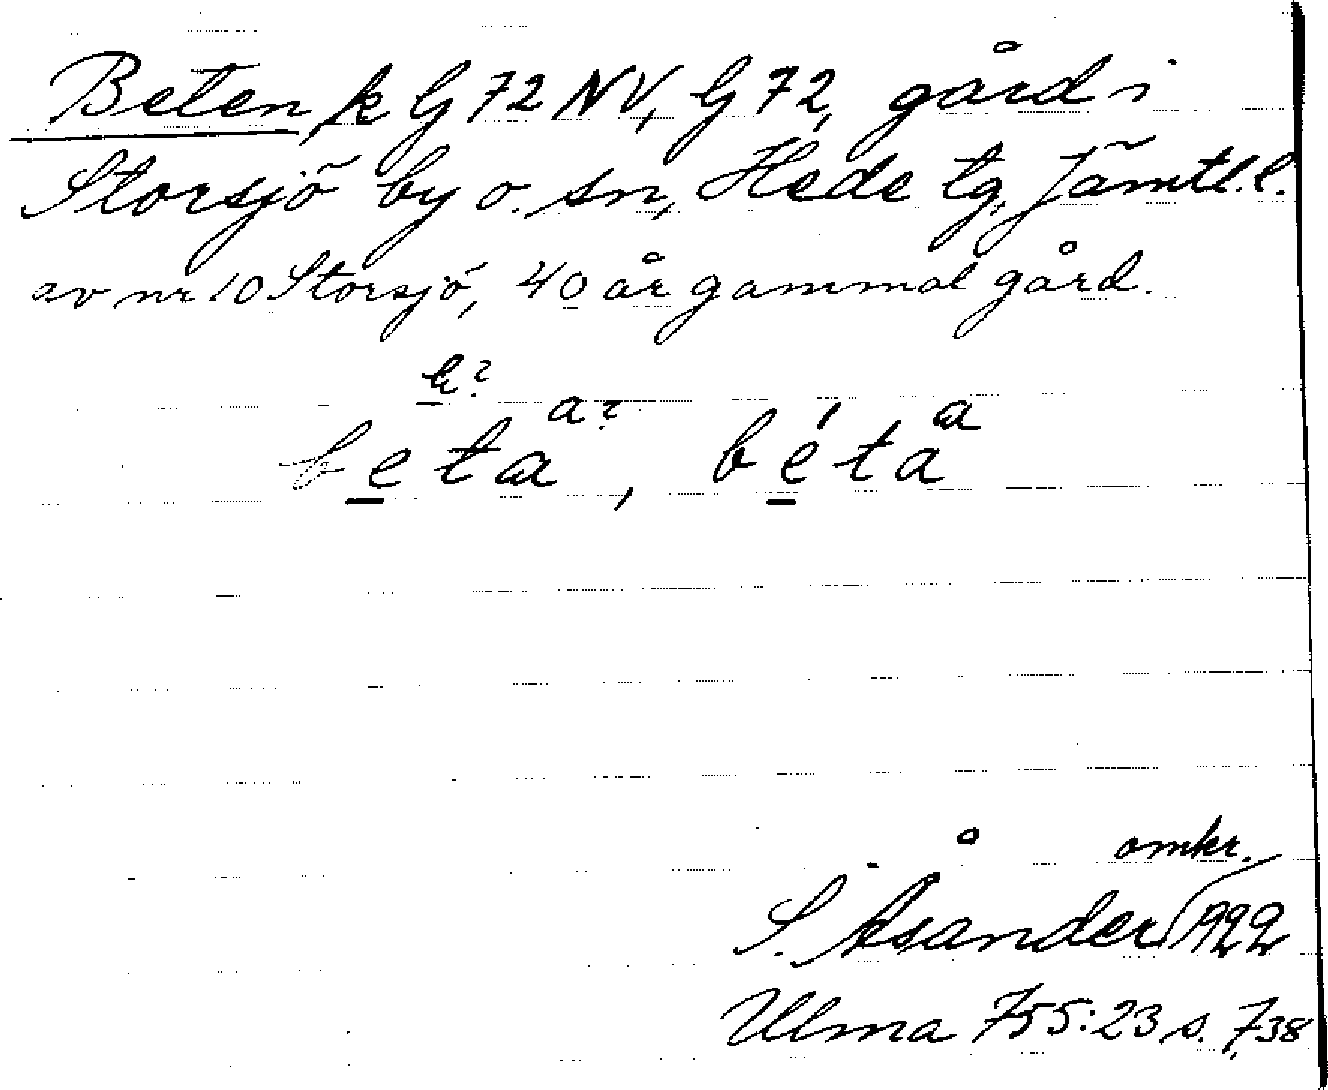 Beten k G 72 NV, G 72, gård i
Storsjö by o. sn, Hede tg, Jämtl. l.
av nr 10 Storsjö, 40 år gammal gård.
a? a
beta, béta
omkr.
S. Åsander 1922
Ulma 755:23 s. 738